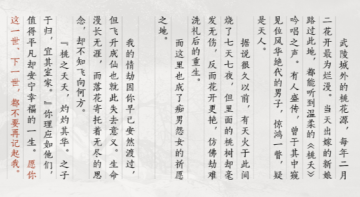 武陵城外的桃花源，每年二月
二花开最为烂漫。当天出嫁的新娘
路过此地，都能听到温柔的《桃夭》
吟唱之声。有人盛传，曾于其中窥
见位风华绝我的男子，惊鸿一瞥，疑
是天人。
据说很久以前，有天火于此间
烧了七天七夜，但里面的桃树却毫
发无伤，反而花开更艳，仿佛劫难
洗礼后的重生。
而这里也成了痴男怨女的祈愿
之地。
我的情劫因你早已安然渡过，
但飞升成仙也就此失去意义。生命
漫长无涯，而落花寄托着无尽的思
念，却不知飞向何方。
『桃之夭夭，灼灼其华。之子
于归，宜其室家。』你理应如他们，
值得平凡却安宁幸福的一生。愿你
这一世、下一世，都不要再记起我。